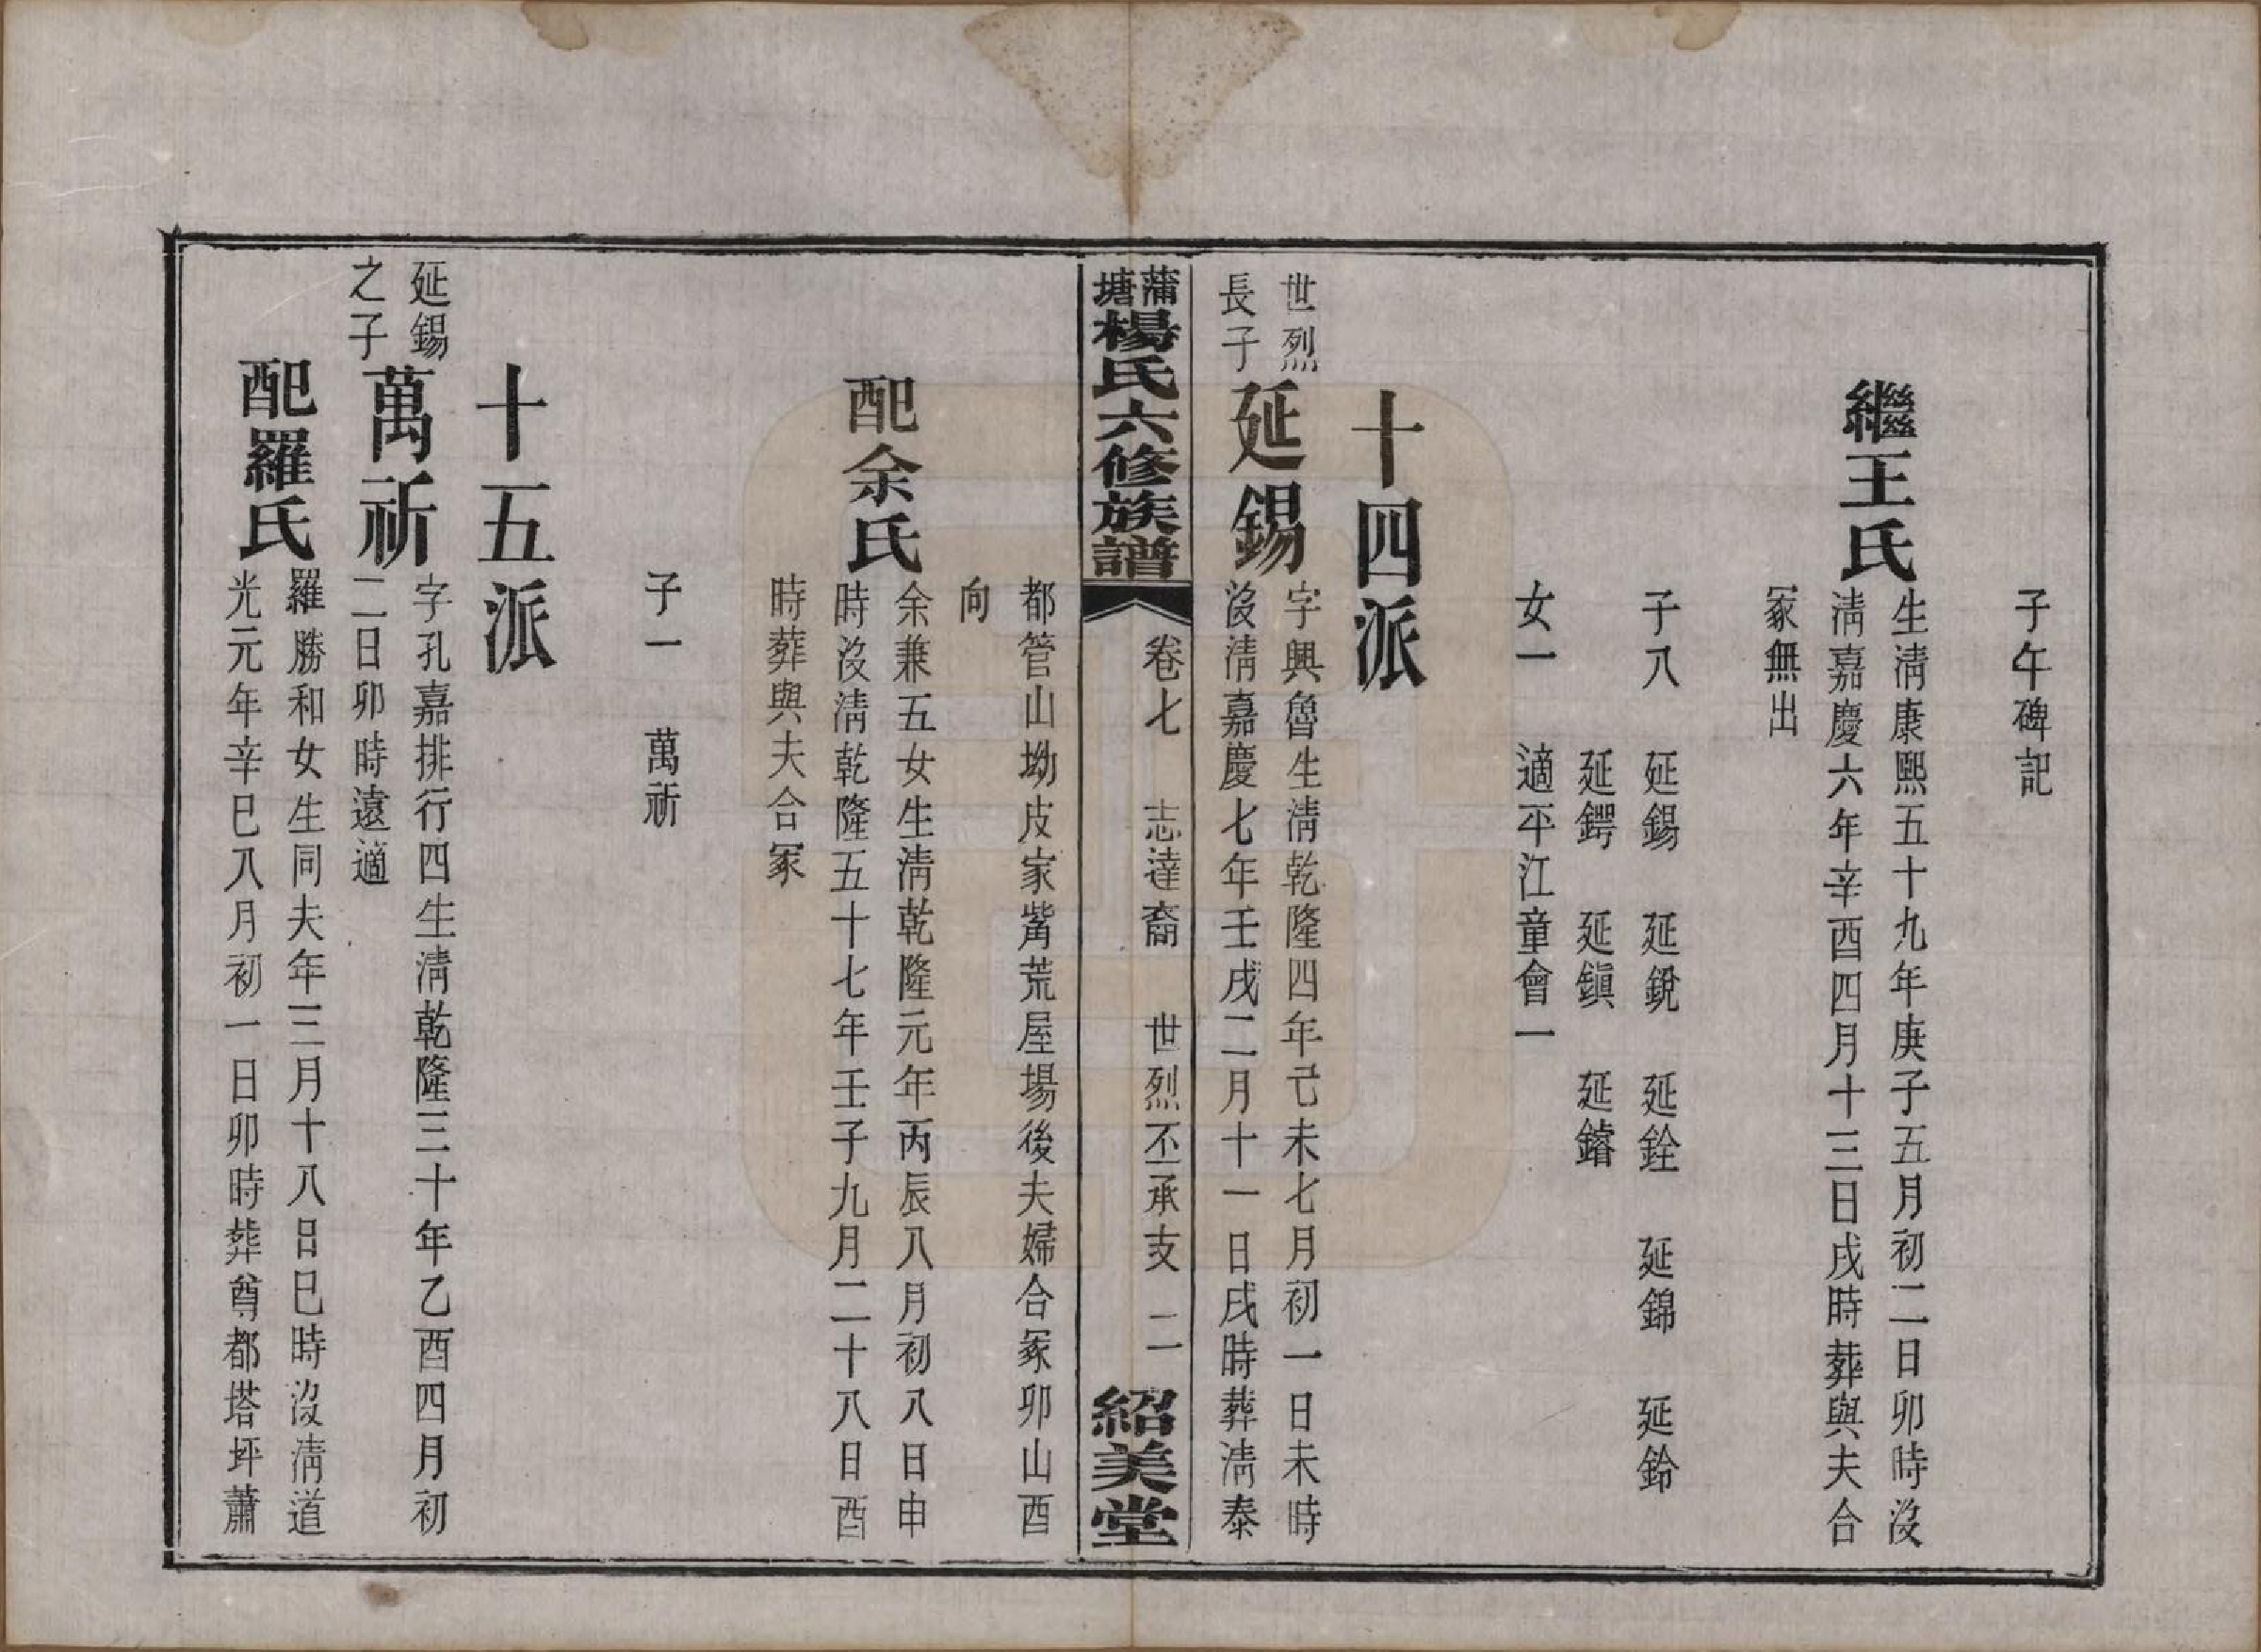 子午碑記
繼王氏
生淸康熙五十九年庚子五月初二日卯時沒
淸嘉慶六年辛酉四月十三日戌時葬與夫合
冢無出
子八 延錫 延銳 延銓 延錦 延鈴
延鍔 延鎭 延鐳
女一 適平江童會一
十四派
世烈
長子
延錫
字興魯生淸乾隆四年己未七月初一日未時
沒淸嘉慶七年壬戌二月十一日戌時葬淸泰
蒲塘楊氏六修族譜 卷七 志達裔 世烈丕承支 二 紹美堂
都管山坳皮家觜荒屋場後夫婦合冢卯山酉
向
配余氏
余兼五女生淸乾隆元年丙辰八月初八日申
時沒淸乾隆五十七年壬子九月二十八日酉
時葬與夫合冢
子一 萬祈
十五派
延錫
之子
萬祈
字孔嘉排行四生淸乾隆三十年乙酉四月初
二日卯時遠適
配羅氏
羅勝和女生同夫年三月十八日巳時沒淸道
光元年辛巳八月初一日卯時葬尊都塔坪蕭